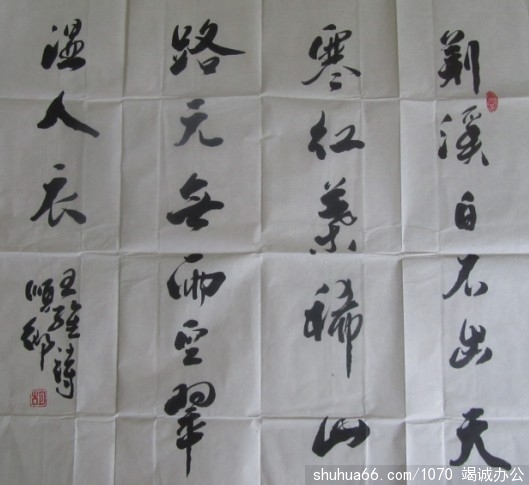 荆溪白石出天
寒红葉稀山
路元無雨空翠
湿人衣
王維詩
shuhua66.com/1070 竭诚办公